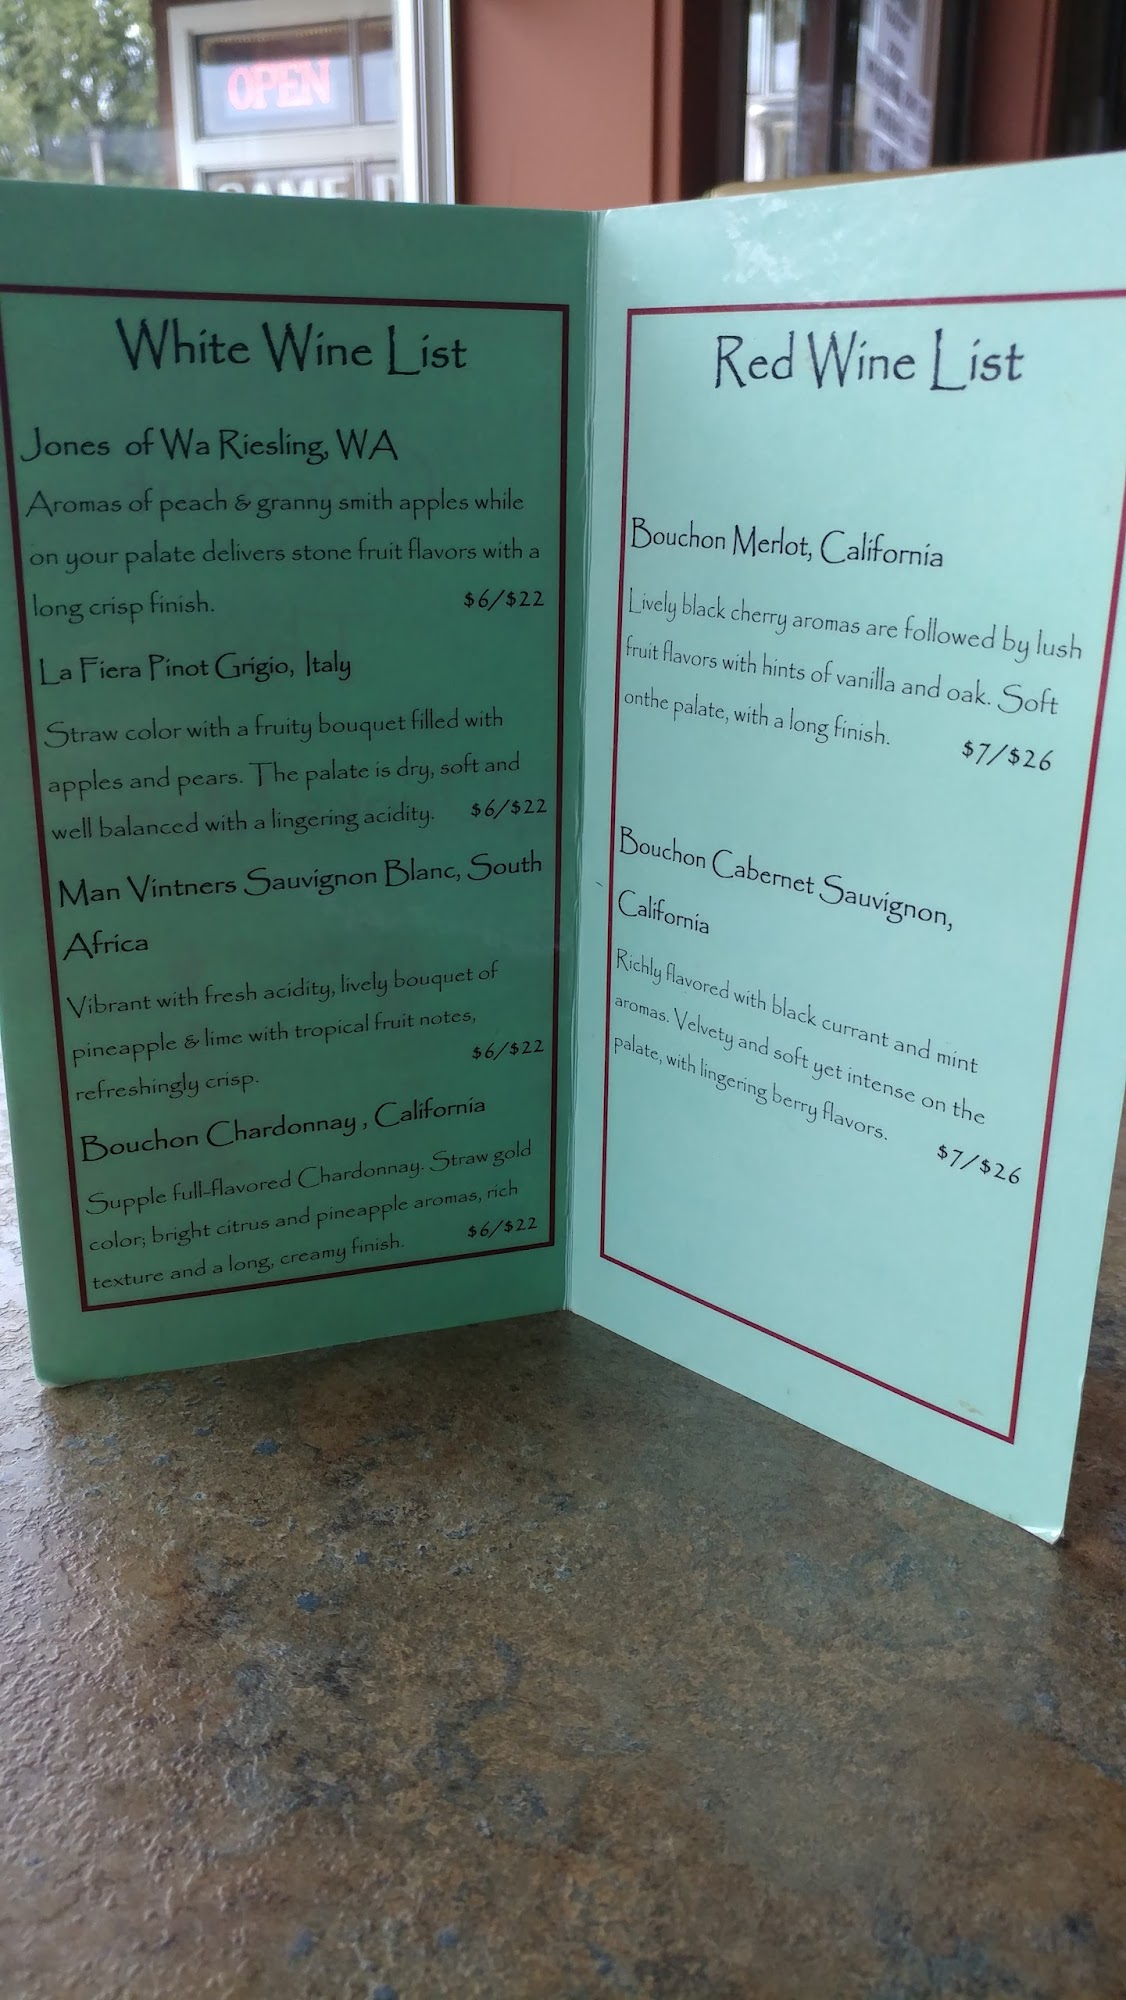 OPEN
White Wine List
Jones of Wa Riesling, WA
Aromas of peach & granny smith apples while
on your palate delivers stone fruit flavors with a
long crisp finish. $6/$22
La Fiera Pinot Grigio, Italy
Straw color with a fruity bouquet filled with
apples and pears. The palate is dry, soft and
well balanced with a lingering acidity. $6/$22
Man Vintners Sauvignon Blanc, South
Africa
Vibrant with fresh acidity, lively bouquet of
pineapple & lime with tropical fruit notes,
refreshingly crisp. $6/$22
Bouchon Chardonnay, California
Supple full-flavored Chardonnay. Straw gold
color; bright citrus and pineapple aromas, rich
texture and a long, creamy finish. $6/$22
Red Wine List
Bouchon Merlot, California
Lively black cherry aromas are followed by lush
fruit flavors with hints of vanilla and oak. Soft
onthe palate, with a long finish. $7/$26
Bouchon Cabernet Sauvignon,
California
Richly flavored with black currant and mint
aromas. Velvety and soft yet intense on the
palate, with lingering berry flavors. $7/$26